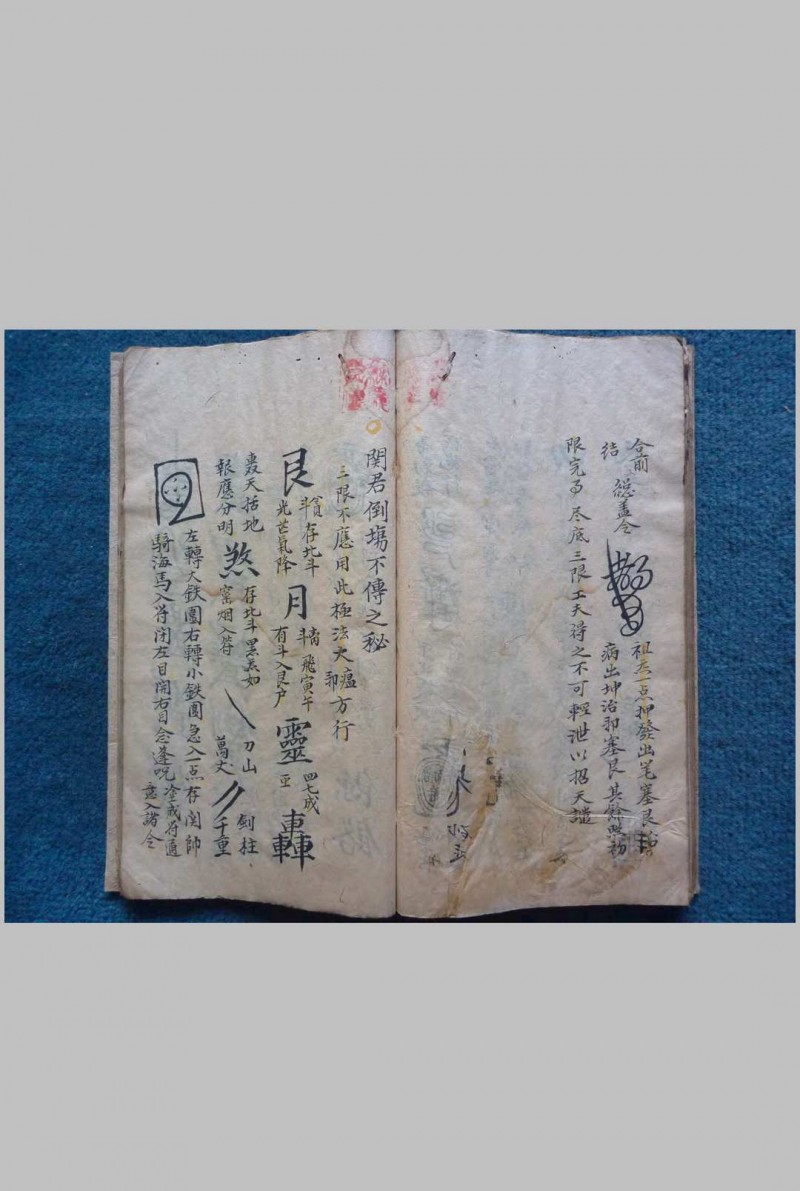 合前
結 總蓋令
祖炁一点押發出笔塞艮
病出坤治和塞艮其餘照初
限完了尽底三限工夫得之不可輕泄以招天譴
関君倒塲不傳之秘
三限不應用此極法大瘟方行
艮 存北斗
光芒氣降
月 飛寅午
有斗入艮户
靈 四七成
轟
轟天括地
報應分明
煞 存北斗黑炁如
窑烟入符
刀山
萬丈
劍柱
千重
左轉大鉄圍右轉小鉄圍急入一点存関帥
騎海馬入符闭左目開右目念逢呪
塗成符適
意入諸令